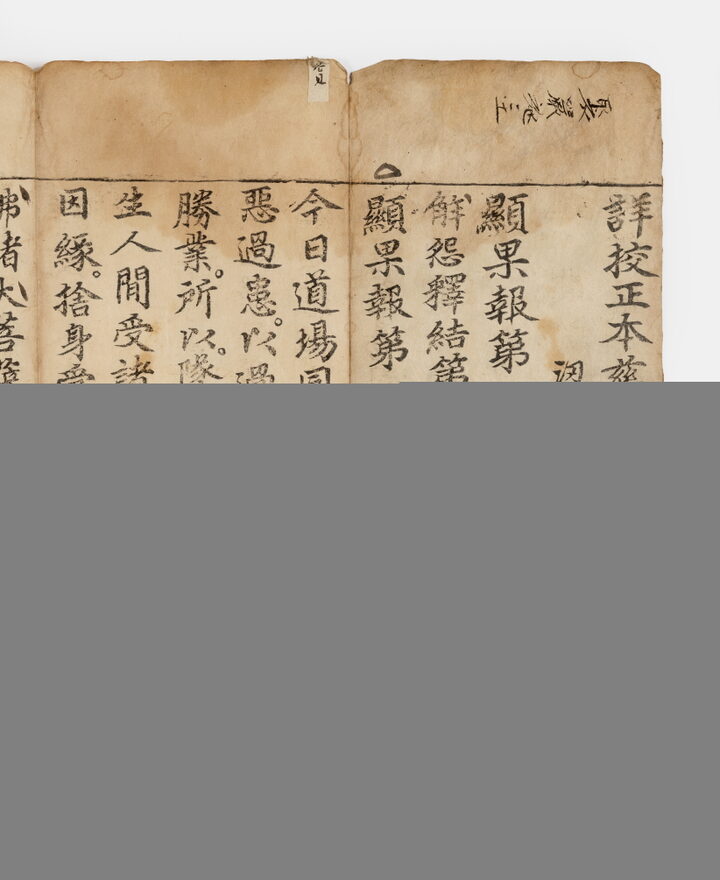 詳校正本慈
顯果報第
解怨釋結第
顯果報第
今日道場同
惡過患以過
勝業所以墜
生人間受諸
因緣捨身受
諸大菩薩